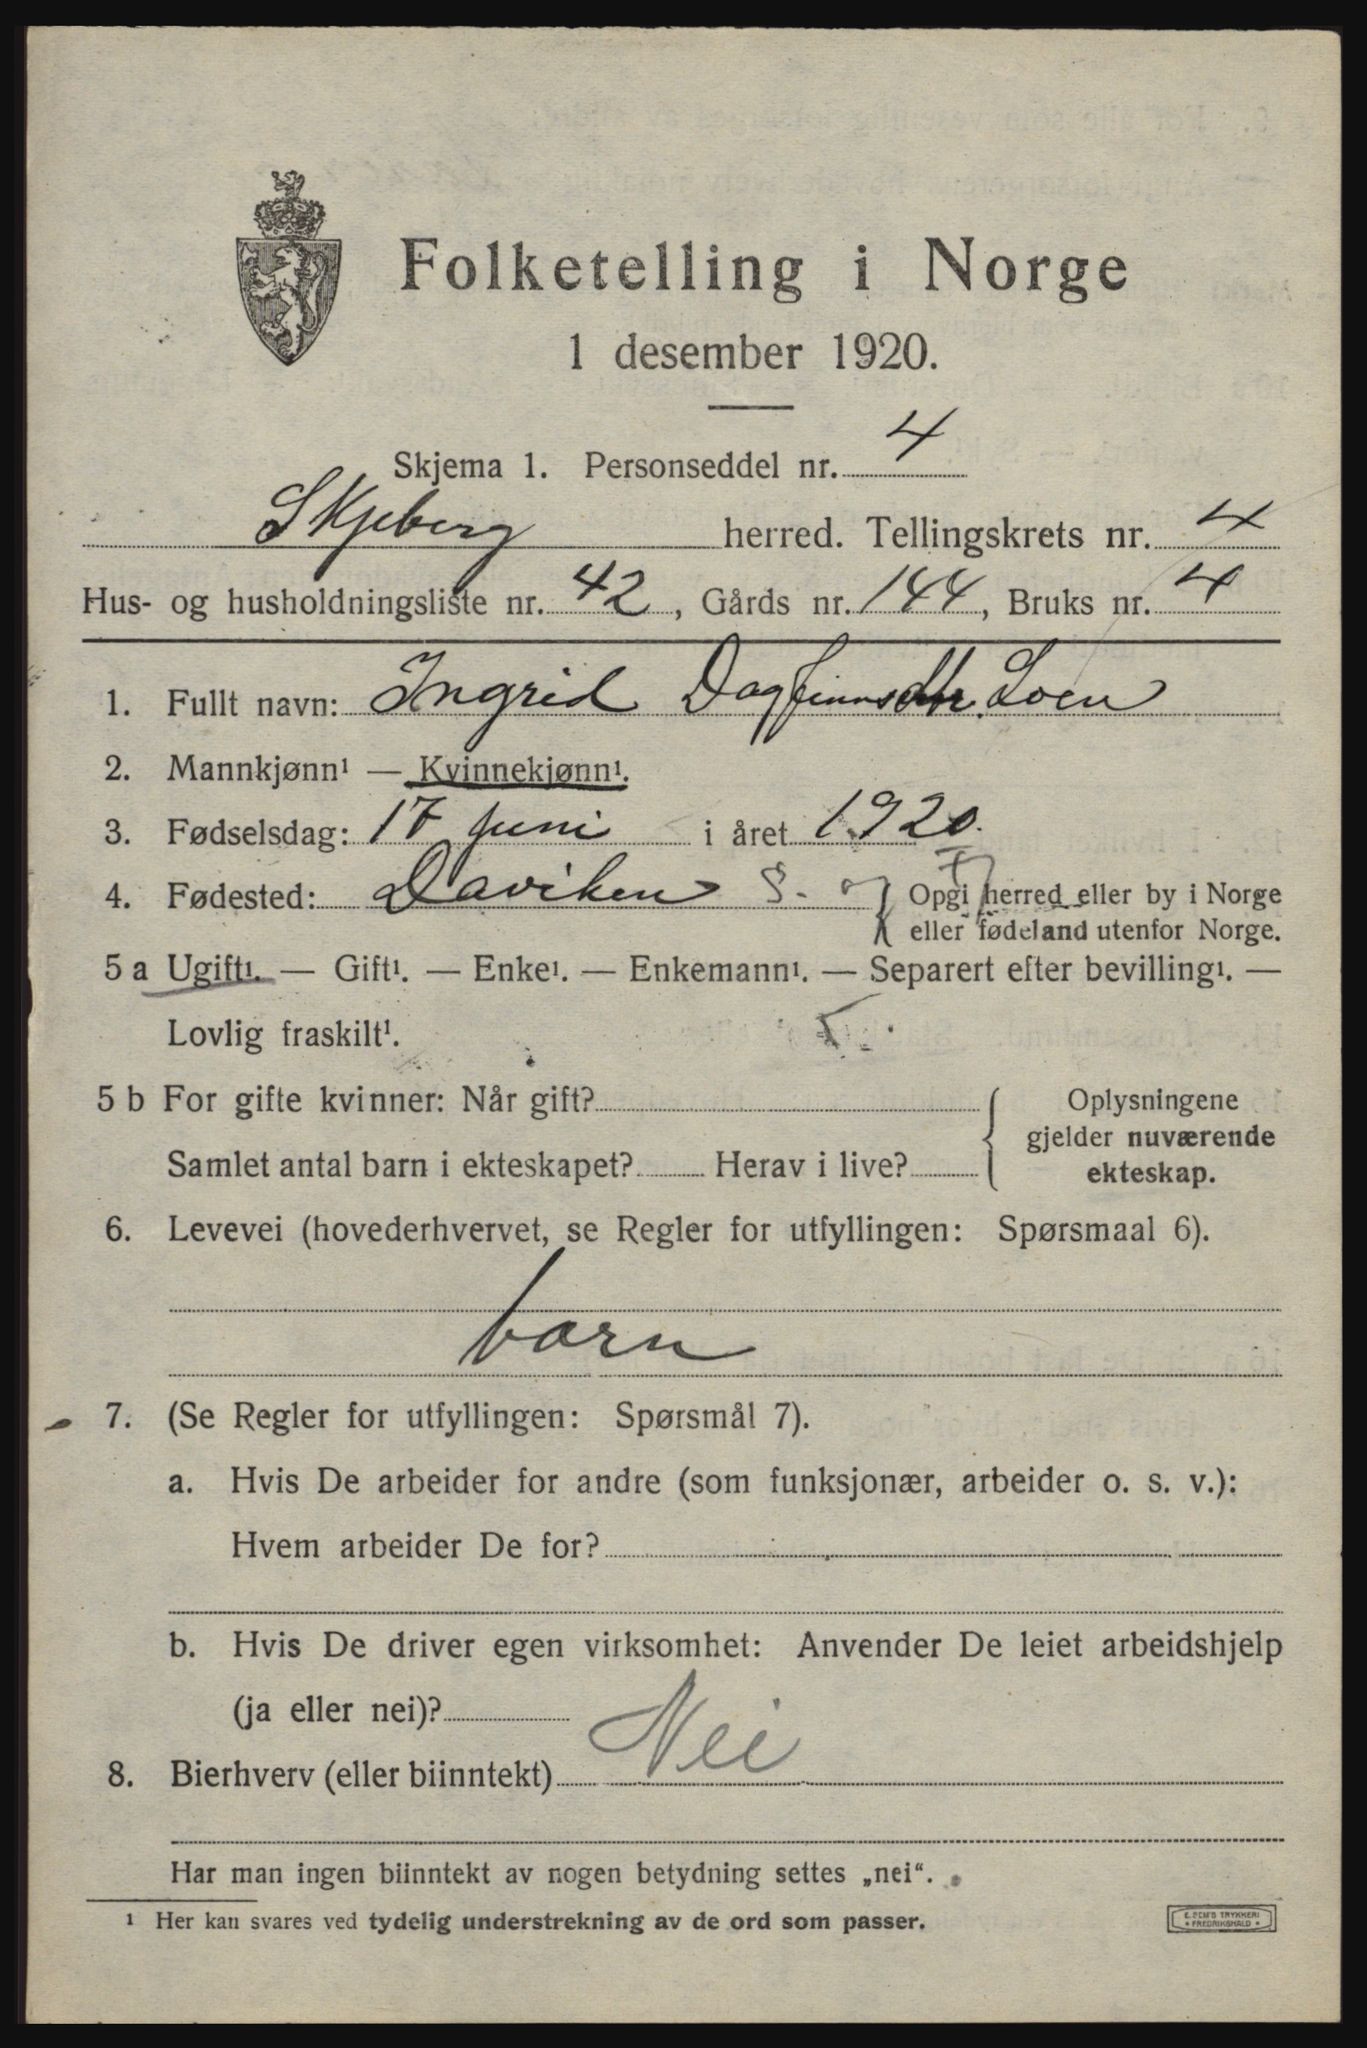 Folketelling i Norge
1 desember 1920.
Skjema 1. Personseddel nr. 4
Skjeberg herred. Tellingskrets nr. 4
Hus- og husholdningsliste nr. 42, Gårds nr. 144, Bruks nr. 4
1. Fullt navn: Ingrid Dagfinnsdtr. Loen
2. Mannkjønn¹ — Kvinnekjønn¹.
3. Fødselsdag: 17 juni i året 1920.
4. Fødested: Daviken S. og Fj { Opgi herred eller by i Norge
eller fødeland utenfor Norge.
5 a Ugift¹. — Gift¹. — Enke¹. — Enkemann¹. — Separert efter bevilling¹. —
Lovlig fraskilt¹.
5 b For gifte kvinner: Når gift? { Oplysningene
gjelder nuværende
Samlet antal barn i ekteskapet? Herav i live? ekteskap.
6. Levevei (hovederhvervet, se Regler for utfyllingen: Spørsmaal 6).
barn
7. (Se Regler for utfyllingen: Spørsmål 7).
a. Hvis De arbeider for andre (som funksjonær, arbeider o. s. v.):
Hvem arbeider De for?
b. Hvis De driver egen virksomhet: Anvender De leiet arbeidshjelp
(ja eller nei)?
8. Bierhverv (eller biinntekt) Nei
Har man ingen biinntekt av nogen betydning settes „nei“.
¹ Her kan svares ved tydelig understrekning av de ord som passer.
E. SEM'S TRYKKERI
* FREDRIKSHALD *